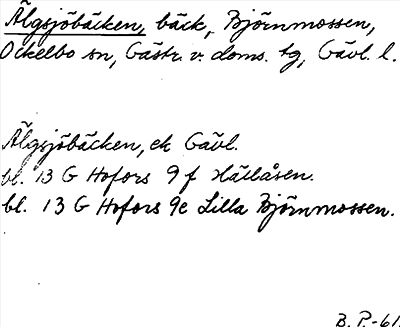 Älgsjöbäcken, bäck, Björnmossen,
Ockelbo sn, Gästr. v. doms. tg, Gävl. l.
Älgsjöbäcken, ek Gävl.
bl. 13 G Hofors 9 f Hällåsen.
bl. 13 G Hofors 9e Lilla Björnmossen.
B. P.-61.